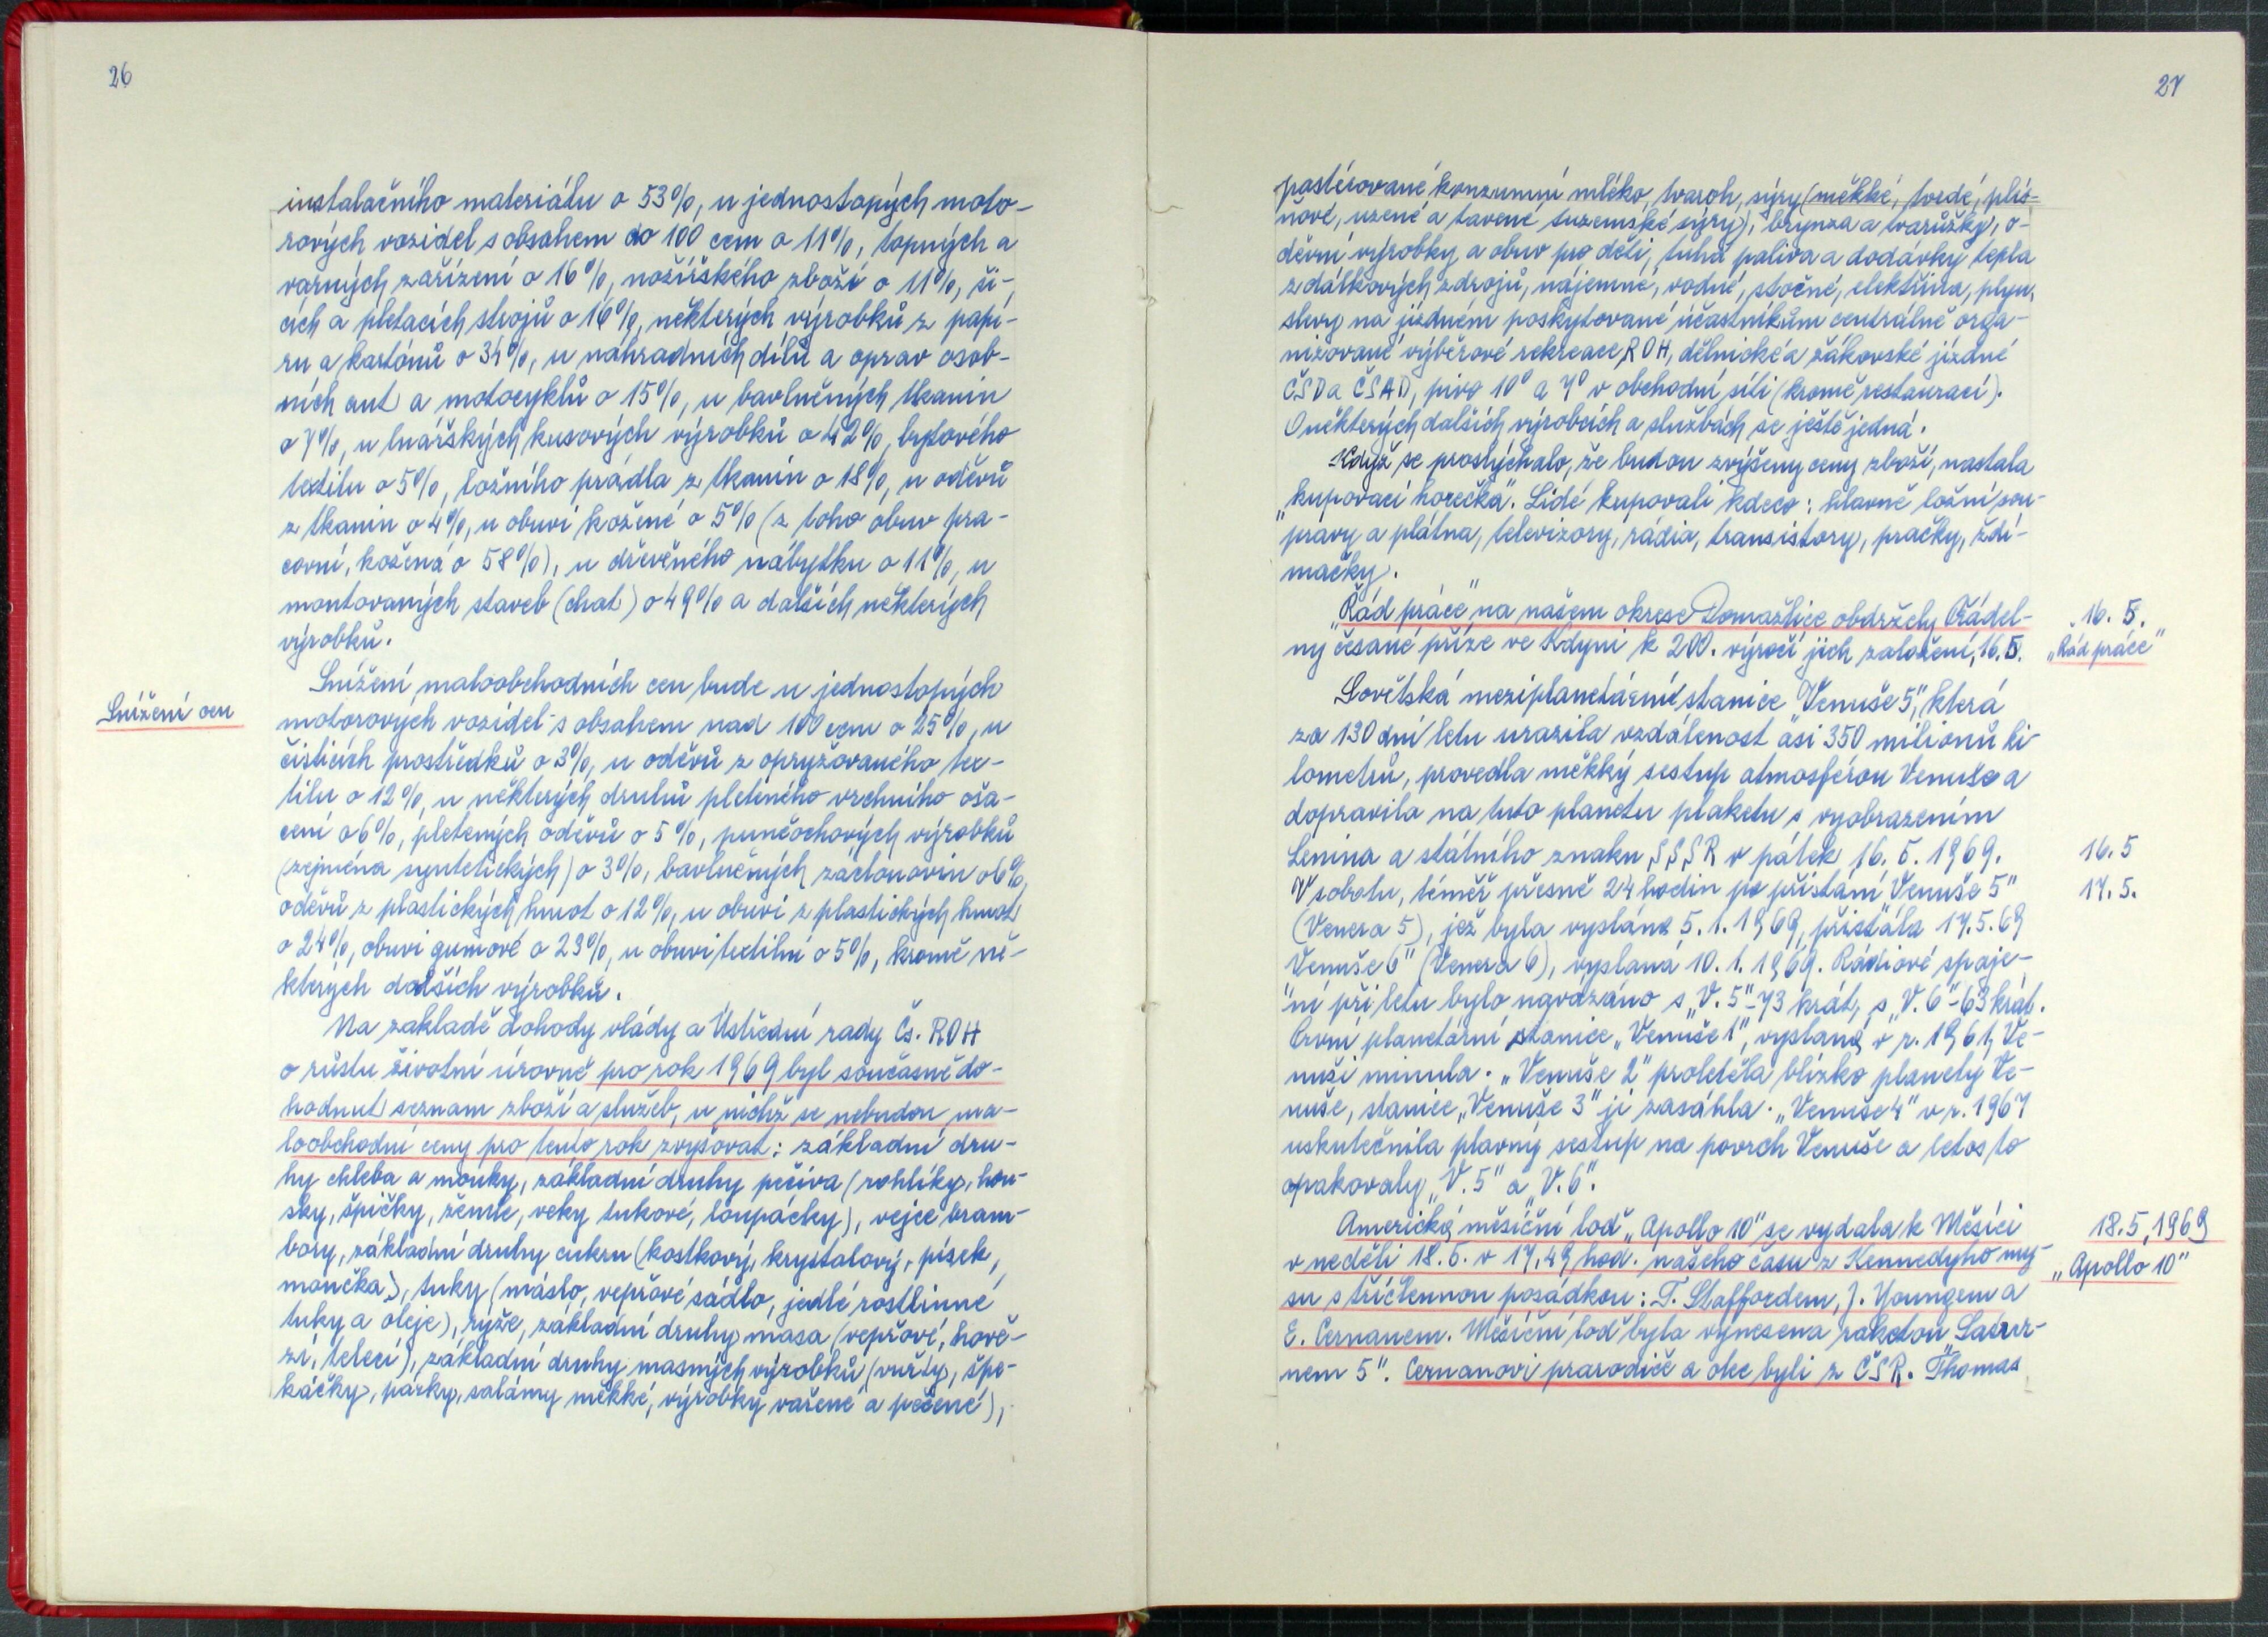 26
instalačního materiálu o 53%, u jednostopých moto-
rových vozidel s obsahem do 100 ccm o 11%, topných a
varných zařízení o 16%, nožířského zboží o 11%, ši-
cích a pletacích strojů o 16%, některých výrobků z papí-
ru a kartónů o 34%, u náhradních dílů a oprav osob-
ních aut a motocyklů o 15%, u bavlněných tkanin
o 7%, u lnářských kusových výrobků o 42%, bytového
textilu o 5%, ložního prádla z tkanin o 18%, u oděvů
z tkanin o 4%, u obuvi kožené o 5% (z toho obuv pra-
covní, kožená o 58%), u dřevěného nábytku o 11%, u
montovaných staveb (chat) o 49% a dalších některých
výrobků.
Snížení cen
Snížení maloobchodních cen bude u jednostopých
motorových vozidel s obsahem nad 100 ccm o 25%, u
čisticích prostředků o 3%, u oděvů z opryžovaného tex-
tilu o 12%, u některých druhů pleteného vrchního oša-
cení o 6%, pletených oděvů o 5%, punčochových výrobků
(zejména syntetických) o 3%, bavlněných záclonovin o 6%,
oděvů z plastických hmot o 12%, u obuvi z plastických hmot
o 24%, obuvi gumové o 23%, u obuvi textilní o 5%, kromě ně-
kterých dalších výrobků.
Na zakladě dohody vlády a Ústřední rady Čs. ROH
o růstu životní úrovně pro rok 1969 byl současně do-
hodnut seznam zboží a služeb, u nichž se nebudou ma-
loobchodní ceny pro tento rok zvyšovat: základní dru-
hy chleba a mouky, základní druhy pečiva (rohlíky, hou-
sky, špičky, žemle, veky tukové, loupáčky), vejce bram-
bory, základní druhy cukru (kostkový, krystalový, písek,
moučka), tuky (máslo, vepřové sádlo, jedlé rostlinné
tuky a oleje), rýže, základní druhy masa (vepřové, hově-
zí, telecí), základní druhy masných výrobků (vuřty, špe-
káčky, párky, salámy měkké, výrobky vařené a pečené),
27
pastérované konzumní mléko, tvaroh, sýry (měkké, tvrdé, plís-
ňové, uzené a tavené tuzemské sýry), brynza a tvarůžky, o-
děvní výrobky a obuv pro děti, tuhá paliva a dodávky tepla
z dálkových zdrojů, nájemné, vodné, stočné, elektřina, plyn,
slevy na jízdném poskytované účastníkům centrálně orga-
nizované výběrové rekreace ROH, dělnické a žákovské jízdné
ČSD a ČSAD, pivo 10° a 7° v obchodní síti (kromě restaurací).
O některých dalších výrobcích a službách se ještě jedná.
Když se proslýchalo, že budou zvýšeny ceny zboží, nastala
„kupovací horečka". Lidé kupovali kdeco: hlavně ložní sou-
pravy a plátna, televizory, rádia, transistory, pračky, ždí-
mačky.
„Řád práce" na našem okrese Domažlice obdržely Přádel-
ny česané příze ve Kdyni k 200. výročí jich založení, 16.5.
16. 5.
„Řád práce"
Sovětská meziplanetární stanice „Venuše 5", která
za 130 dní letu urazila vzdálenost asi 350 milionů ki-
lometrů, provedla měkký sestup atmosférou Venuše a
dopravila na tuto planetu plaketu s vyobrazením
Lenina a státního znaku SSSR v pátek 16. 5. 1969.
16.5
V sobotu, téměř přesně 24 hodin po přistání „Venuše 5"
17. 5.
(Venera 5), jež byla vyslána 5. 1. 1969, přistála 17.5.69
„Venuše 6" (Venera 6), vyslaná 10. 1. 1969. Rádiové spoje-
ní při letu bylo navázáno s „V. 5"-73 krát, s „V. 6"-63 krát.
První planetární stanice „Venuše 1", vyslaná v r. 1961, Ve-
nuši minula. „Venuše 2" proletěla blízko planety Ve-
nuše, stanice „Venuše 3" ji zasáhla. „Venuše 4" v r. 1967
uskutečnila plavný sestup na povrch Venuše a letos to
opakovaly „V. 5" a „V. 6".
Americká měsíční loď „Apollo 10" se vydala k Měsíci
18.5, 1969
v neděli 18. 5. v 17,49 hod. našeho času z Kennedyho my-
„Apollo 10"
su s tříčlennou posádkou: T. Staffordem, J. Youngem a
E. Cernanem. Měsíční loď byla vynesena raketou „Satur-
nem 5". Cernanovi prarodiče a otec byli z ČSR. Thomas